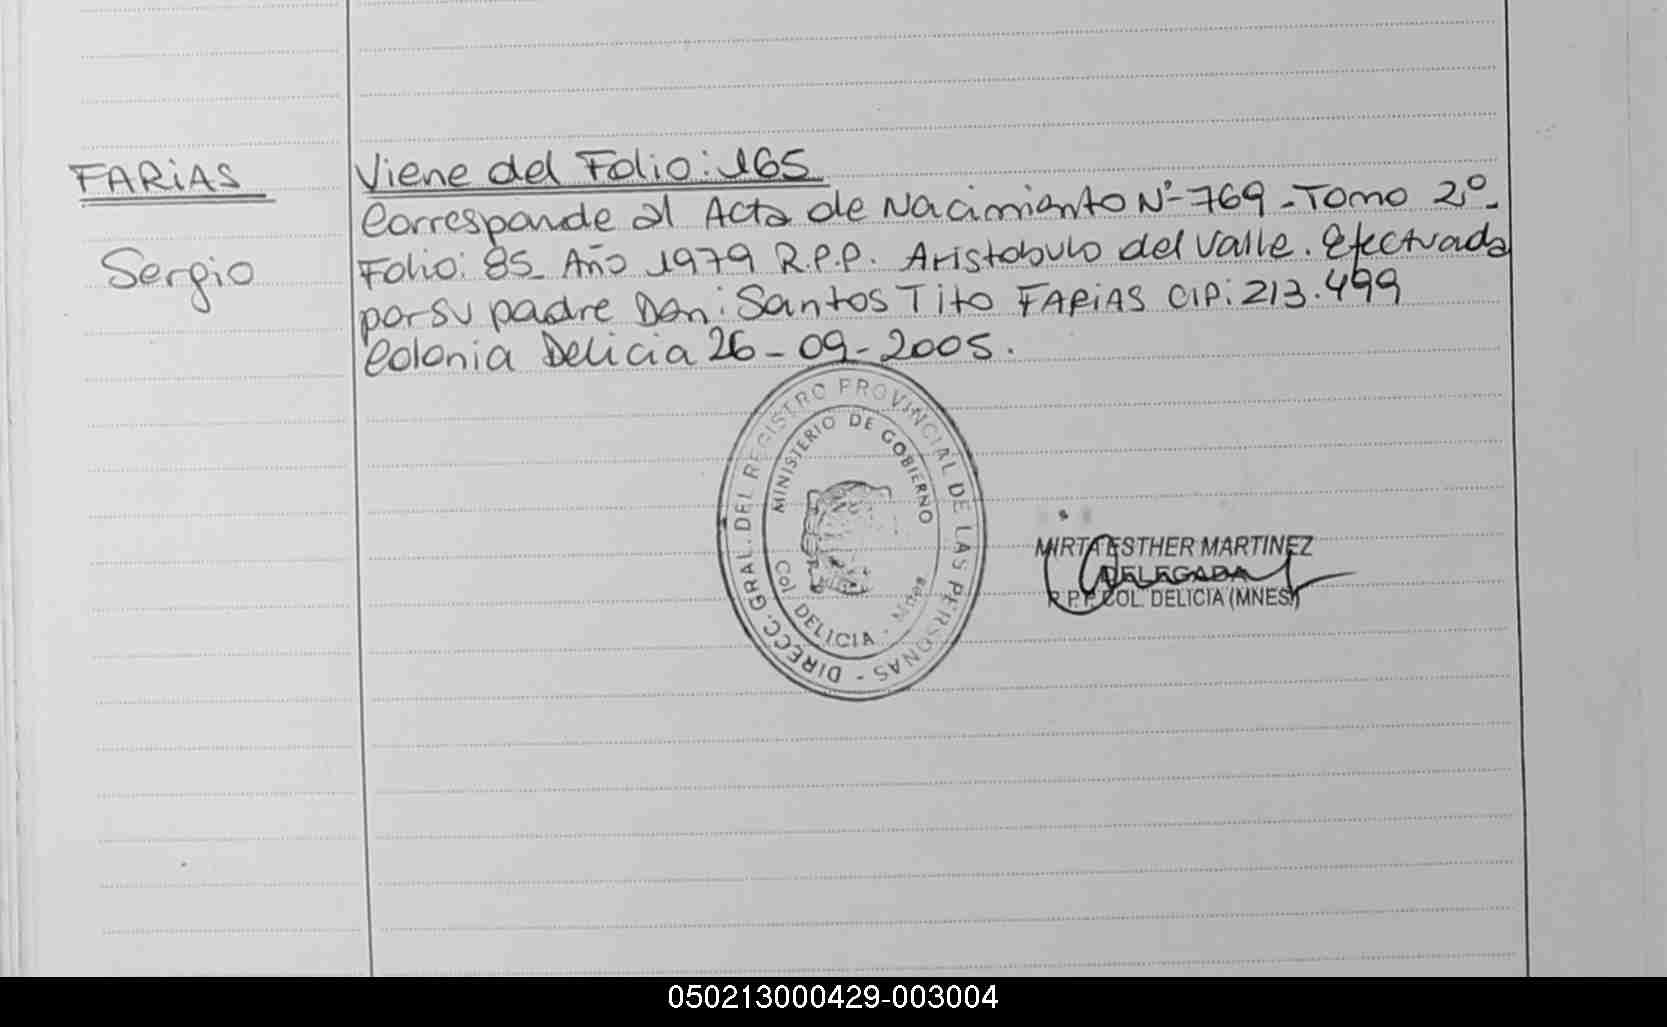 FARIAS
Sergio
Viene del Folio: 165
Corresponde al Acta de Nacimiento Nº 769 - Tomo 2º -
Folio: 85 Año 1979 R.P.P. Aristobulo del Valle. Efectuada
por su padre Don: Santos Tito FARIAS CIP: 213.499
Colonia Delicia 26-09-2005.
DIRECC. GRAL. DEL REGISTRO PROVINCIAL DE LAS PERSONAS -
MINISTERIO DE GOBIERNO
Col DELICIA - Mnes
MIRTA ESTHER MARTINEZ
DELEGADA
R.P.P. COL. DELICIA (MNES)
050213000429-003004